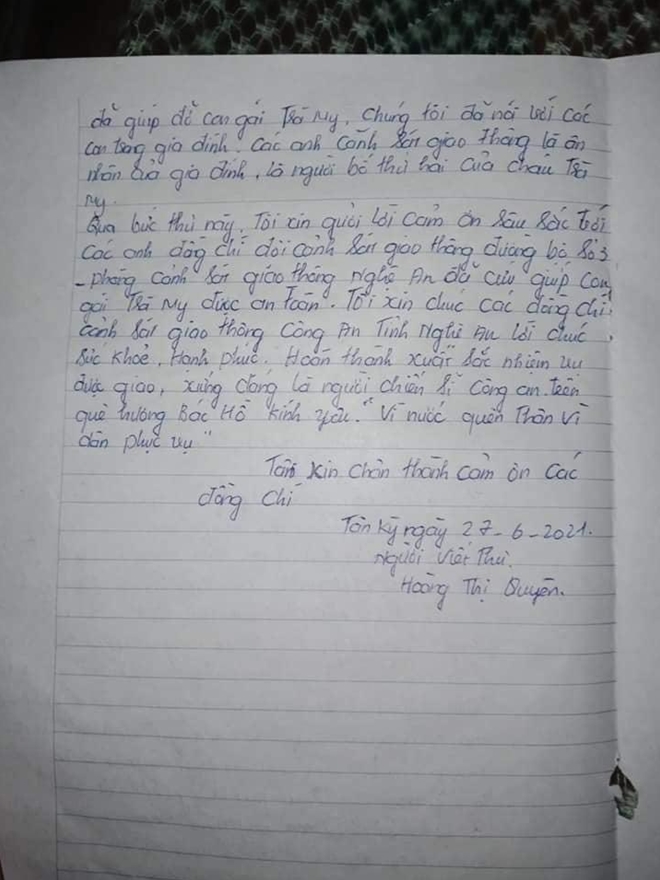 đã giúp đỡ con gái Trà My. Chúng tôi đã nói với các
con trong gia đình. Các anh Cảnh sát giao thông là ân
nhân của gia đình, là người bố thứ hai của cháu Trà
My.
Qua bức thư này. Tôi xin gửi lời cảm ơn sâu sắc tới
các anh đồng chí đội cảnh sát giao thông đường bộ số 3
- phòng cảnh sát giao thông Nghệ An đã cứu giúp con
gái Trà My được an toàn. Tôi xin chúc các đồng chí
cảnh sát giao thông Công An Tỉnh Nghệ An lời chúc
sức khoẻ, Hạnh phúc. Hoàn thành xuất sắc nhiệm vụ
được giao, xứng đáng là người chiến sĩ Công an trên
quê hương Bác Hồ kính yêu. "Vì nước quên Thân Vì
dân phục vụ"
Tôi xin chân thành cảm ơn các
đồng chí
Tân Kỳ ngày 27-6-2021.
Người viết Thư.
Hoàng Thị Quyên.